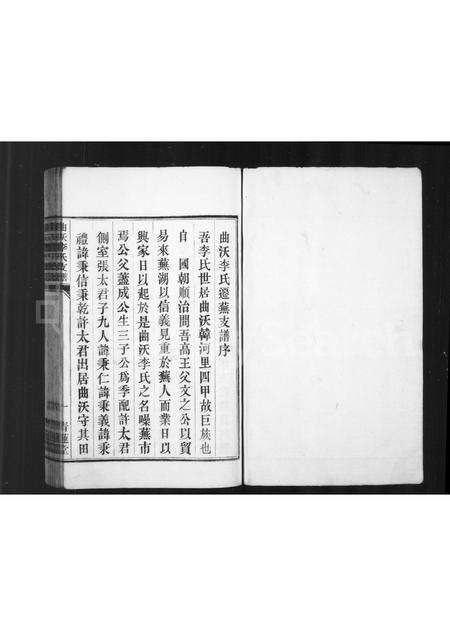 曲沃李氏遷蕪支譜序
吾李氏世居曲沃韓河里四甲故巨族也
自　國朝順治間吾高王父文之公以貿
易來蕪湖以信義見重於蕪人而業日以
興家日以起於是曲沃李氏之名噪蕪市
焉公父藎成公生三子公爲季配許太君
側室張太君子九人諱秉仁諱秉義諱秉
禮諱秉信秉乾許太君出居曲沃守其田
曲沃李氏支譜
一